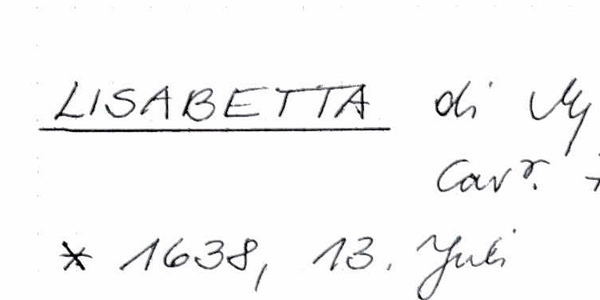 LISABETTA di
Cavr.
* 1638, 13. Juli